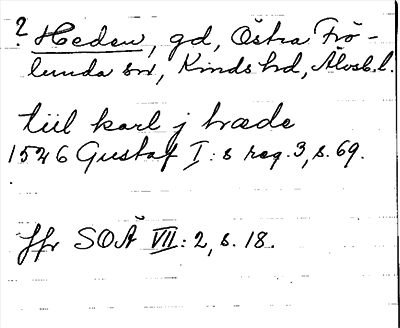 ? Heden, gd, Östra Frö-
lunda sn, Kinds hd, Älvsb. l.
tiil karl j hæde
1546 Gustaf I:s reg. 3, s. 69.
Jfr SOÄ VII: 2, s. 18.